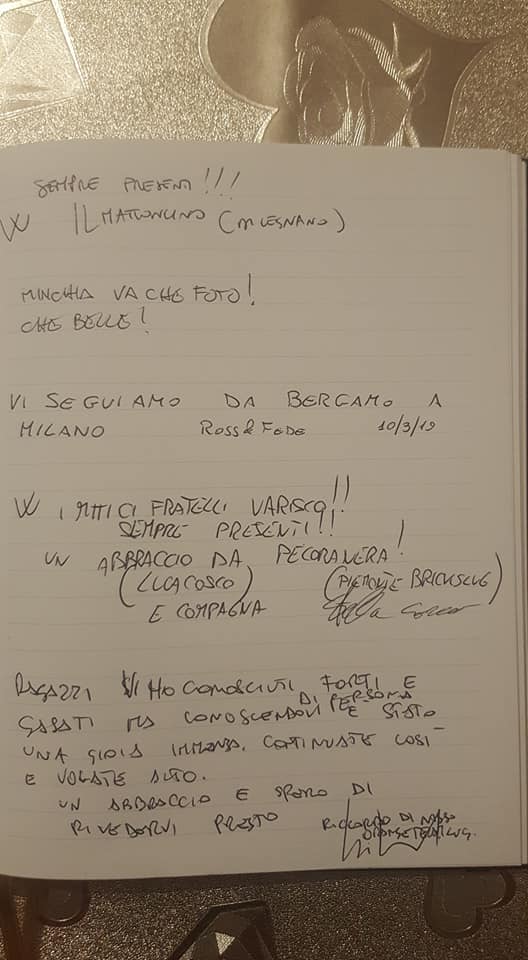 SEMPRE PRESENTI!!!
W IL MATTONCINO (IN LEGNANO)
MINCHIA VA CHE FOTO!
CHE BELLE!
VI SEGUIAMO DA BERGAMO A
MILANO ROSS & FEDE 10/3/19
W I MITICI FRATELLI VARISCO!!
SEMPRE PRESENTI!!
UN ABBRACCIO DA PECORANERA!
(LUCA COSCO) (PIEMONTE BRICKSLUG)
E COMPAGNA
RAGAZZI VI HO CONOSCIUTI FORTI E
GASATI MA CONOSCENDOVI DI PERSONA È STATO
UNA GIOIA IMMENSA. CONTINUATE COSÌ
E VOLATE ALTO.
UN ABBRACCIO E SPERO DI
RIVEDERVI PRESTO RICCARDO DI